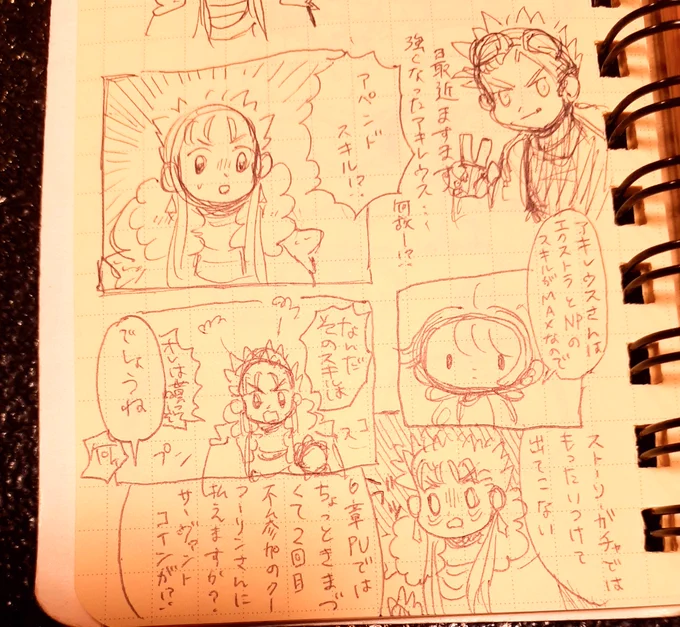 最近ますます
強くなったアキレウス…
何故ー!?
アペンド
スキル!?
アキレウスさんは
エクストラとNPの
スキルがMAXなので
なんだ
そのスキルは
オレは貰って
でしょうね
何
プン
コス
ストーリーガチャでは
もったいつけて
出てこない
6章PUでは
ちょっときまづ
くて2回目
不参加のクー
フーリンさんに
払えますか?
サーヴァント
コインが!?